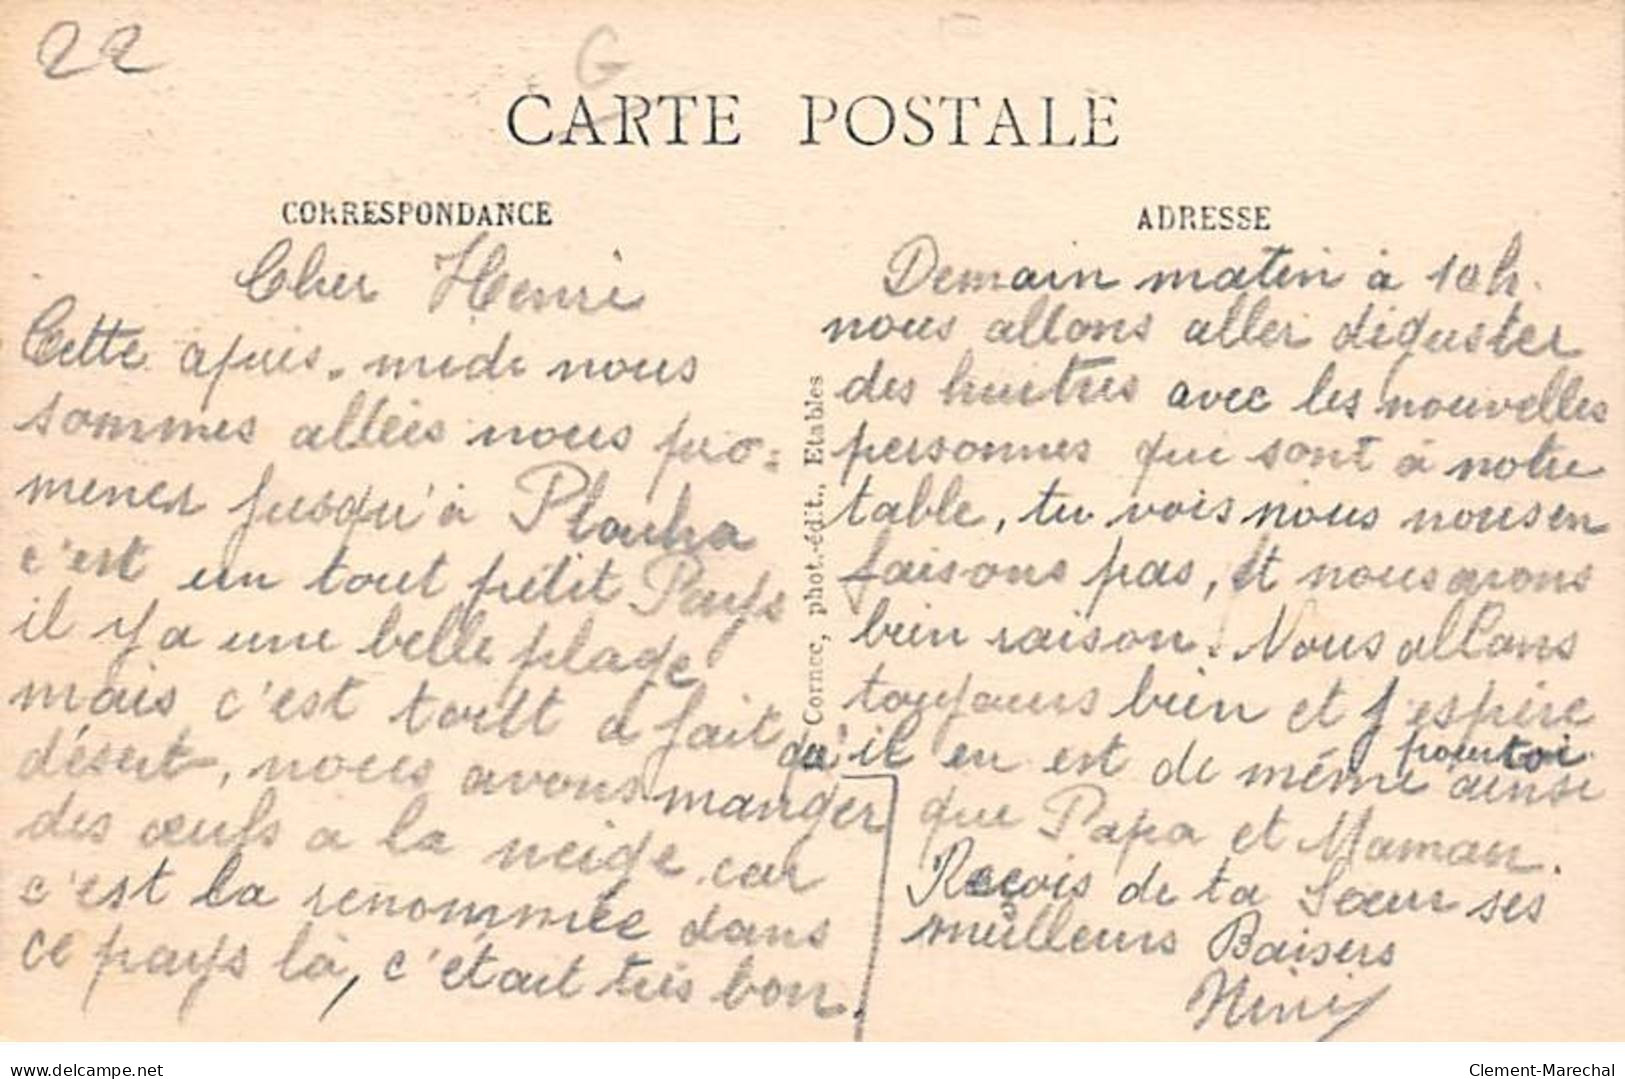 22
G
CARTE POSTALE
CORRESPONDANCE
Cher Henri
Cette après-midi nous
sommes allées nous pro=
mener jusqu'à Plouha
c'est un tout petit Pays
il y a une belle plage
mais c'est toutt a fait
désert, nous avons manger
des œufs a la neige car
c'est la renommée dans
ce pays là, c'était très bon.
Cornec, phot.-édit., Etables
ADRESSE
Demain matin à 10h.
nous allons aller déguster
des huitres avec les nouvelles
personnes qui sont à notre
table, tu vois nous nous en
faisons pas, et nous avons
bien raison. Nous allons
toujours bien et j'espère
qu'il en est de même pour toi ainsi
que Papa et Maman.
Reçois de ta Sœur ses
meilleurs Baisers
Nini
www.delcampe.net
Clement-Marechal